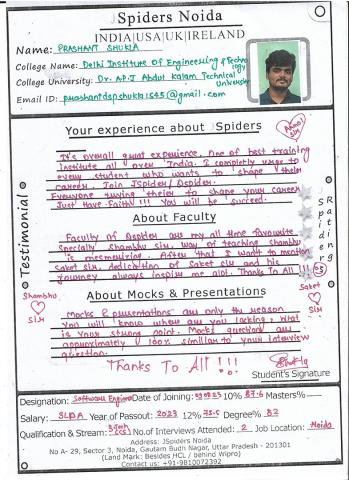 JSpiders Noida
INDIA|USA|UK|IRELAND
Name: PRASHANT SHUKLA
College Name: Delhi Institute Of Engineering & Techno
logy
College University: Dr. A.P.J Abdul Kalam Technical
University
Email ID: prashantdspshukla1545@gmail.com
Your experience about JSpiders
It's overall great experience. One of best training
institute all over India. I completly urge to
every student who wants to shape their
career. Join JSpider/Qspider.
Everyone trying their to shape your career
Just Have Faith!!! You will be succeed.
Testimonial
About Faculty
Faculty of Qspider are my all time favourite
specially Shambhu sir, way of teaching shambhu
is mesmerizing. After that I want to mention
Saket sir, dedication of Saket sir and his
journey always inspire me alot. Thanks To All !!!
Shambhu
Sir
Saket
Sir
About Mocks & Presentations
Mocks & presentations are only the reason
you will know where are you lacking, what
is your strong point. Mocks question are
approximately 100% similar to your interview
question.
Thanks To All !!!
Student's Signature
Designation: Software Engineer Date of Joining: 10% 87.6 Masters%
Salary: Year of Passout: 2023 12% 73.5 Degree% 82
Qualification & Stream: No.of Interviews Attended: 2 Job Location: Noida
Address: JSpiders Noida
No A- 29, Sector 3, Noida, Gautam Budh Nagar, Uttar Pradesh - 201301
(Land Mark: Besides HCL / behind Wipro)
Contact us: +91-9810072392